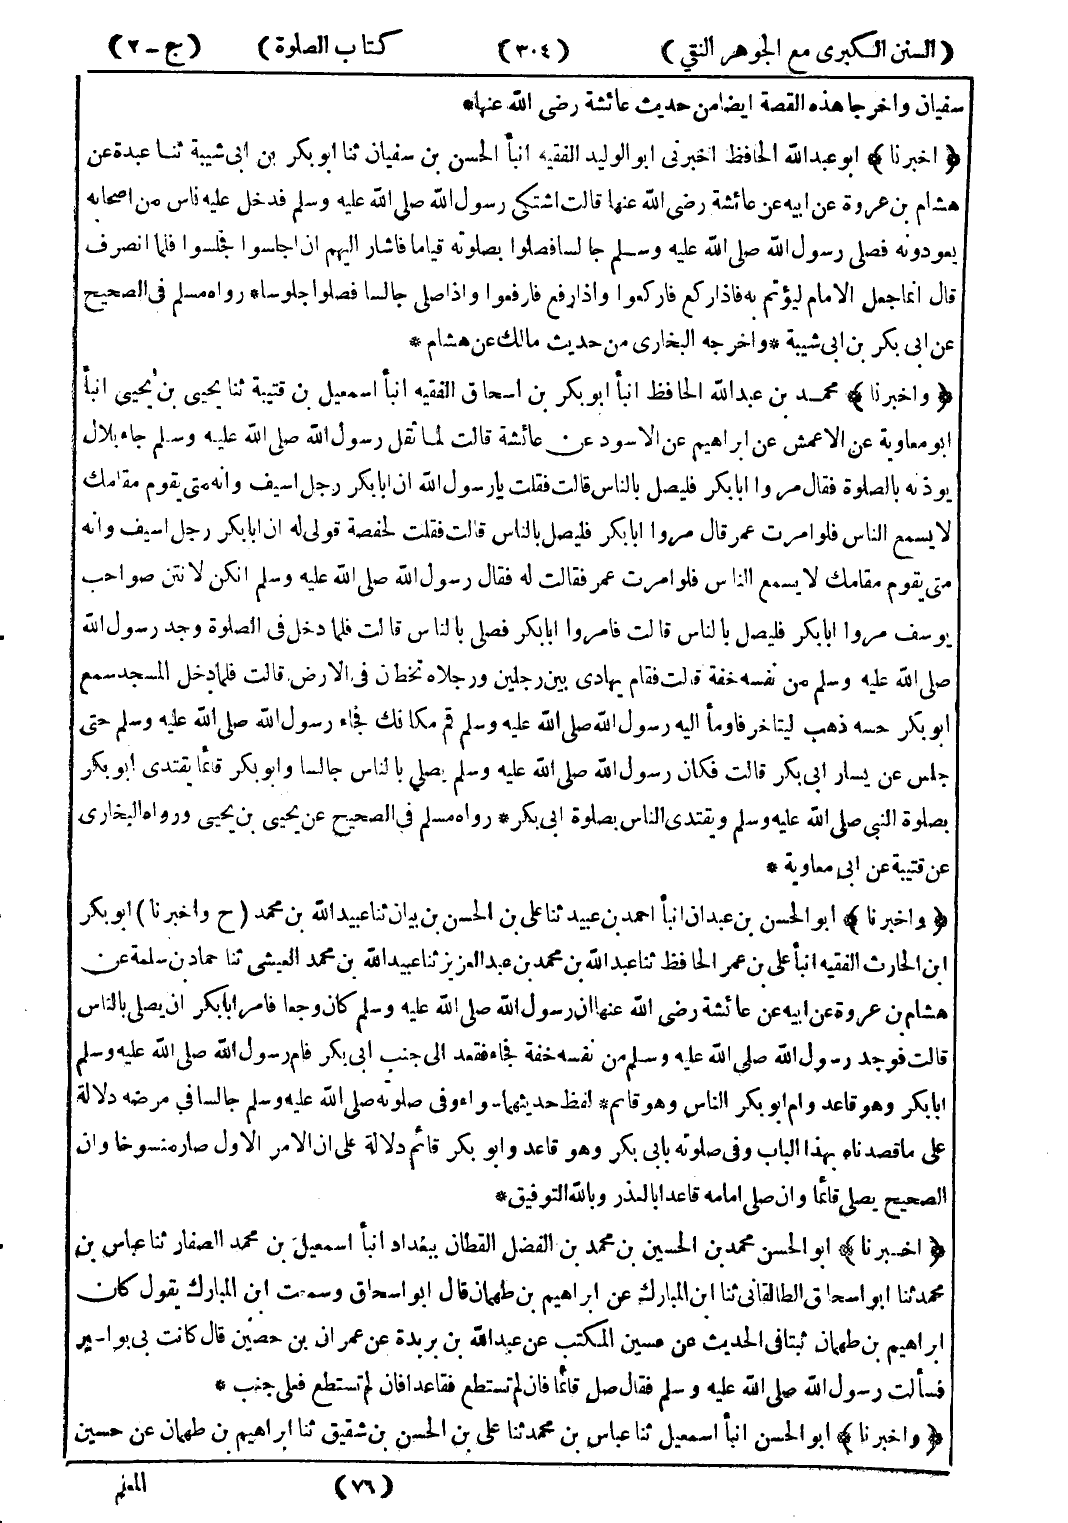 (السنن الكبرى مع الجوهر النقي) (٣٠٤) كتاب الصلوة) (ج-٢)
سفيان واخرجا هذه القصة ايضا من حديث عائشة رضى الله عنها*
﴿ اخبرنا ﴾ ابو عبدالله الحافظ اخبرنى ابو الوليد الفقيه انبأ الحسن بن سفيان ثنا ابو بكر بن ابى شيبة ثنا عبدة عن
هشام بن عروة عن ابيه عن عائشة رضى الله عنها قالت اشتكى رسول الله صلى الله عليه وسلم فدخل عليه ناس من اصحابه
يعودونه فصلى رسول الله صلى الله عليه وسلم جالسا فصلوا بصلوته قياما فاشار اليهم ان اجلسوا فجلسوا فلما انصرف
قال انما جعل الامام ليؤتم به فاذا ركع فاركعوا واذا رفع فارفعوا واذا صلى جالسا فصلوا جلوسا* رواه مسلم فى الصحيح
عن ابى بكر بن ابى شيبة *واخرجه البخارى من حديث مالك عن هشام *
﴿ واخبرنا ﴾ محمد بن عبدالله الحافظ انبأ ابو بكر بن اسحاق الفقيه انبأ اسمعيل بن قتيبة ثنا يحيى بن يحيى انبأ
ابو معاوية عن الاعمش عن ابراهيم عن الاسود عن عائشة قالت لما ثقل رسول الله صلى الله عليه وسلم جاء بلال
يوذنه بالصلوة فقال مروا ابابكر فليصل بالناس قالت فقلت يارسول الله ان ابابكر رجل اسيف وانه متى يقوم مقامك
لا يسمع الناس فلو امرت عمر قال مروا ابابكر فليصل بالناس قالت فقلت لحفصة قولى له ان ابابكر رجل اسيف وانه
متى يقوم مقامك لا يسمع الناس فلو امرت عمر فقالت له فقال رسول الله صلى الله عليه وسلم انكن لانتن صواحب
يوسف مروا ابابكر فليصل بالناس قالت فامروا ابابكر فصلى بالناس قالت فلما دخل فى الصلوة وجد رسول الله
صلى الله عليه وسلم من نفسه خفة قالت فقام يهادى بين رجلين ورجلاه تخطان فى الارض قالت فلما دخل المسجد سمع
ابو بكر حسه ذهب ليتاخر فاومأ اليه رسول الله صلى الله عليه وسلم قم مكانك فجاء رسول الله صلى الله عليه وسلم حتى
جلس عن يسار ابى بكر قالت فكان رسول الله صلى الله عليه وسلم يصلي بالناس جالسا وابو بكر قائما يقتدى ابو بكر
بصلوة النبي صلى الله عليه وسلم ويقتدى الناس بصلوة ابى بكر* رواه مسلم فى الصحيح عن يحيى بن يحيى ورواه البخارى
عن قتيبة عن ابى معاوية *
﴿ واخبرنا ﴾ ابو الحسن بن عبدان انبأ احمد بن عبيد ثنا على بن الحسن بن بيان ثنا عبيد الله بن محمد (ح واخبرنا) ابو بكر
ابن الحارث الفقيه انبأ على بن عمر الحافظ ثنا عبد الله بن محمد بن عبد العزيز ثنا عبيد الله بن محمد العيشى ثنا حماد بن سلمة عن
هشام بن عروة عن ابيه عن عائشة رضى الله عنها ان رسول الله صلى الله عليه وسلم كان وجعا فامر ابابكر ان يصلى بالناس
قالت فوجد رسول الله صلى الله عليه وسلم من نفسه خفة فجاء فقعد الى جنب ابى بكر فام رسول الله صلى الله عليه وسلم
ابابكر وهو قاعد وام ابو بكر الناس وهو قائم* لفظ حديثهما سواء وفى صلوته صلى الله عليه وسلم جالسا في مرضه دلالة
على ما قصدناه بهذا الباب وفى صلوته بابى بكر وهو قاعد وابو بكر قائم دلالة على ان الامر الاول صار منسوخا وان
الصحيح يصلى قائما وان صلى امامه قاعدا بالعذر وبالله التوفيق*
﴿ اخبرنا ﴾ ابو الحسن محمد بن الحسين بن محمد بن الفضل القطان ببغداد انبأ اسمعيل بن محمد الصفار ثنا عباس بن
محمد ثنا ابو اسحاق الطالقانى ثنا ابن المبارك عن ابراهيم بن طهمان قال ابو اسحاق وسمعت ابن المبارك يقول كان
ابراهيم بن طهمان ثبتا فى الحديث عن حسين المكتب عن عبدالله بن بريدة عن عمران بن حصين قال كانت بى بواسير
فسألت رسول الله صلى الله عليه وسلم فقال صل قائما فان لم تستطع فقاعدا فان لم تستطع فعلى جنب *
﴿ واخبرنا ﴾ ابو الحسن انبأ اسمعيل ثنا عباس بن محمد ثنا على بن الحسن بن شقيق ثنا ابراهيم بن طهمان عن حسين
(٧٦) المعلم